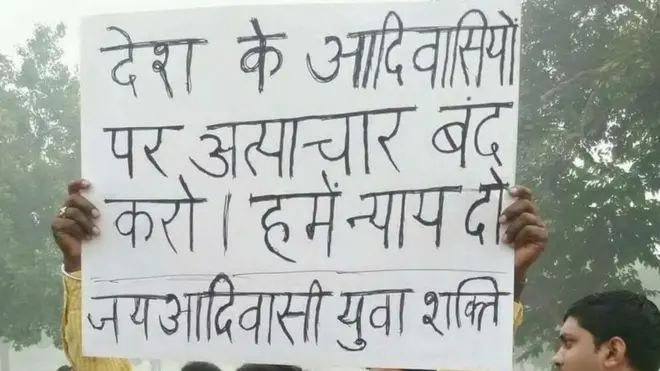 देश के आदिवासियों
पर अत्याचार बंद
करो। हमें न्याय दो
जय आदिवासी युवा शक्ति